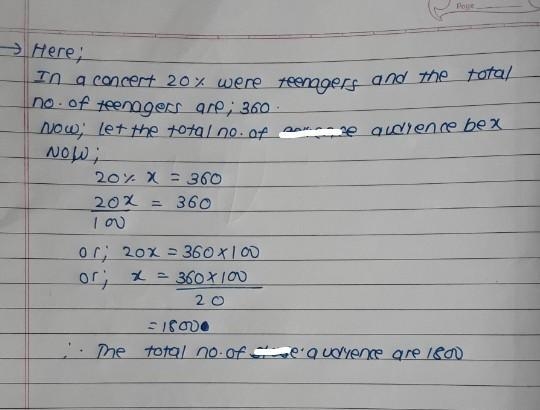 Page
→ Here;
In a concert 20% were teenagers and the total
no. of teenagers are; 360.
Now; let the total no. of audience be x
Now;
20% x = 360
20x = 360
100
or; 20x = 360 x 100
or; x = 360 x 100
20
= 1800
∴ The total no. of audyence are 1800